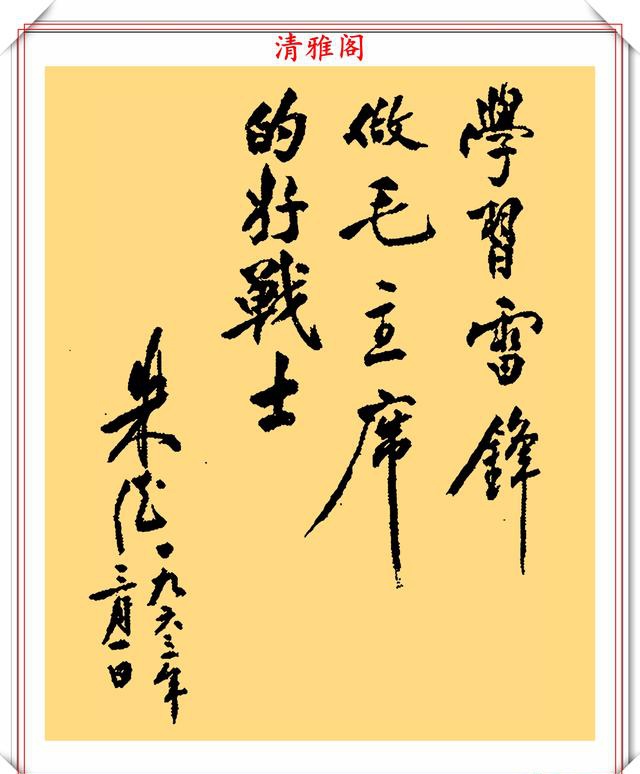 清雅阁
學習雷鋒
做毛主席
的好戰士
朱德
一九六三年
三月一日